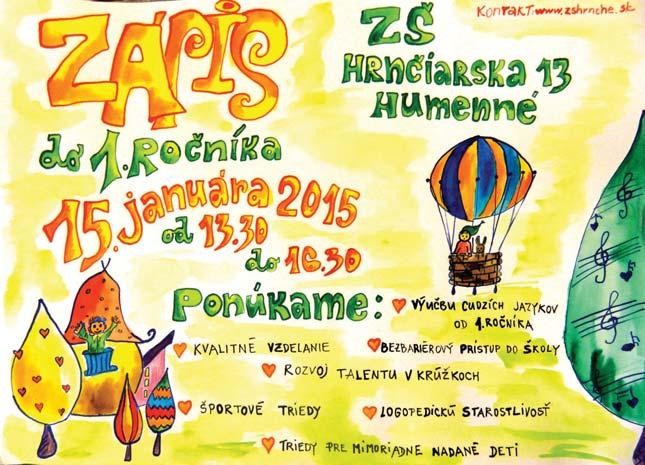 Kontakt: www.zshrnche.sk
ZÁPIS
ZŠ
Hrnčiarska 13
Humenné
do 1. Ročníka
15. januára 2015
od 13.30
do 16.30
Ponúkame:
VÝUČBU CUDZÍCH JAZYKOV
OD 1. ROČNÍKA
KVALITNÉ VZDELANIE
BEZBARIÉROVÝ PRÍSTUP DO ŠKOLY
ROZVOJ TALENTU V KRÚŽKOCH
ŠPORTOVÉ TRIEDY
LOGOPEDICKÚ STAROSTLIVOSŤ
TRIEDY PRE MIMORIADNE NADANÉ DETI